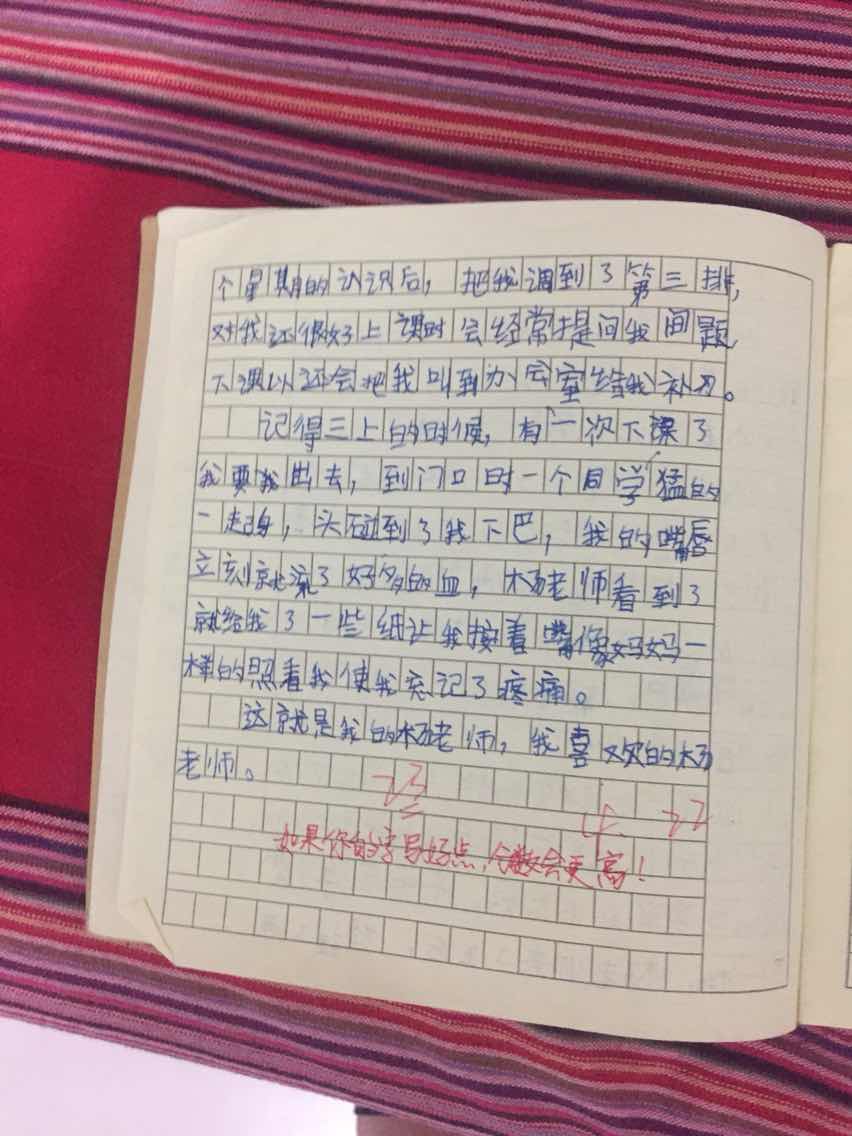 个星期的认识后，把我调到了第三排，
对我还很好上课时会经常提问我问题
下课以还会把我叫到办会室给我补习。
记得三上的时候，有一次下课了
我要我出去，到门口时一个同学猛的
一起身，头碰到了我下巴，我的嘴唇
立刻就流了好多的血，杨老师看到了
就给我了一些纸让我按着嘴像妈妈一
样的照看我使我忘记了疼痛。
这就是我的杨老师，我喜欢的杨
老师。
23
4 22
如果你的字写好点，分数会更高！